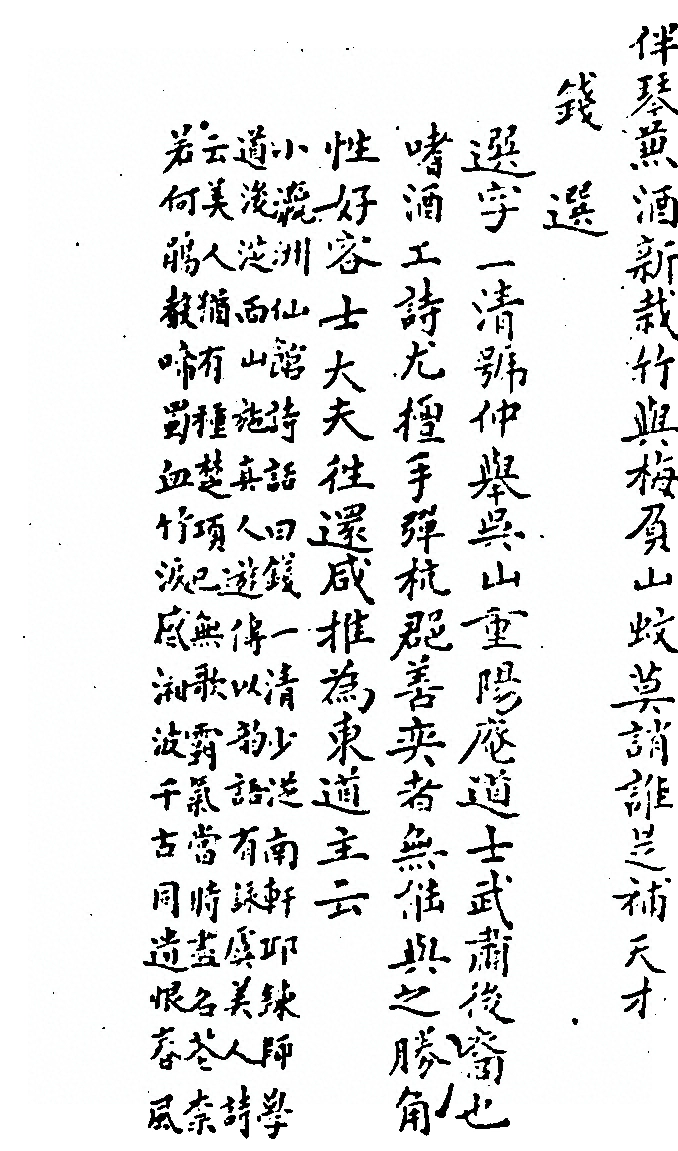 伴琴煎酒新栽竹與梅負山蚊莫誚誰是補天才
錢選
選字一清號仲舉吳山重陽庵道士武肅後裔也
嗜酒工詩尤擅手彈杭郡善奕者無能與之勝角
性好客士大夫往還咸推為東道主云
小瀛洲仙館詩話曰錢一清少從南軒邱鍊師學
道後從西山施真人遊傳以韵語有詠虞美人詩
云美人猶有種楚項已無歌霸氣當時盡名花奈
若何鵑教啼蜀血竹淚感湘波千古同遺恨春風